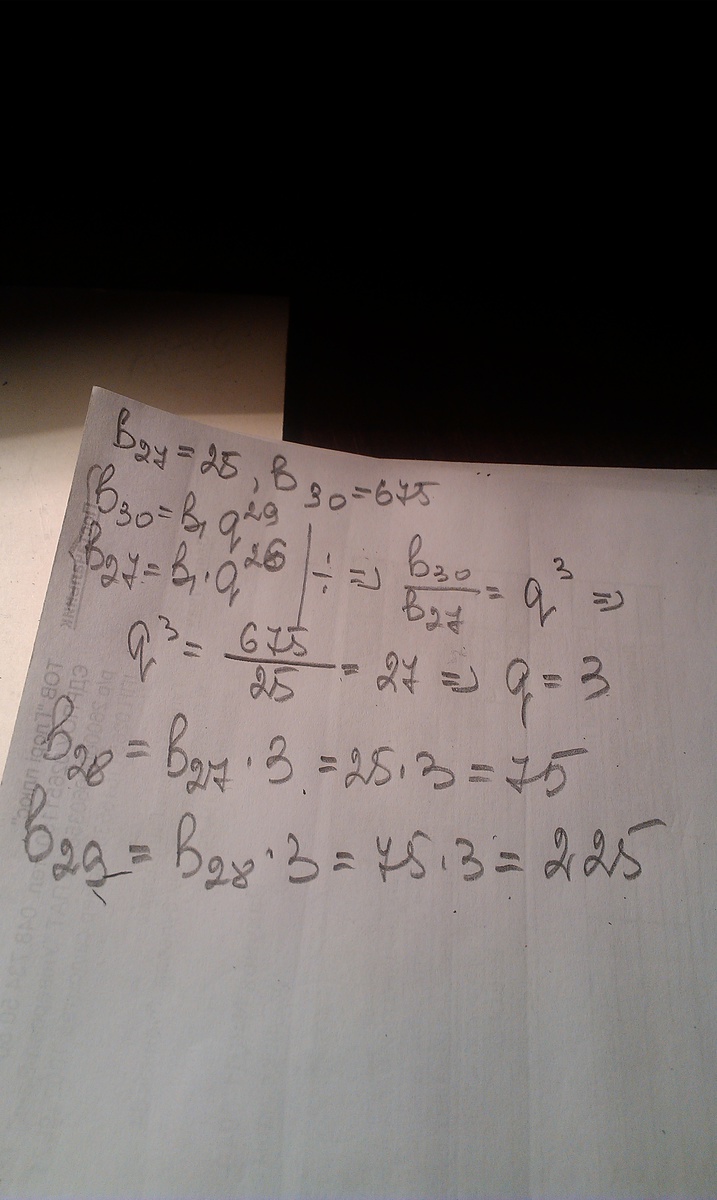 b₂₇ = 25, b₃₀ = 675
b₃₀ = b₁ q²⁹
b₂₇ = b₁ · q²⁶ | ÷ ⇒ b₃₀/b₂₇ = q³ ⇒
q³ = 675/25 = 27 ⇒ q = 3
b₂₈ = b₂₇ · 3 = 25 · 3 = 75
b₂₉ = b₂₈ · 3 = 75 · 3 = 225